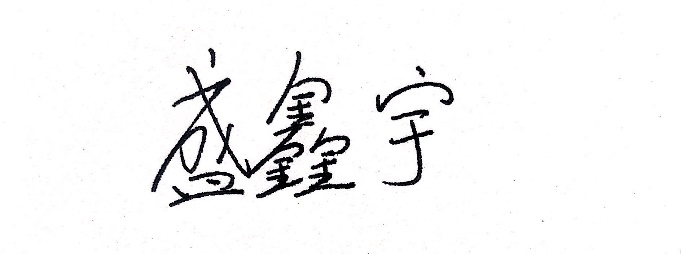 盛鑫宇